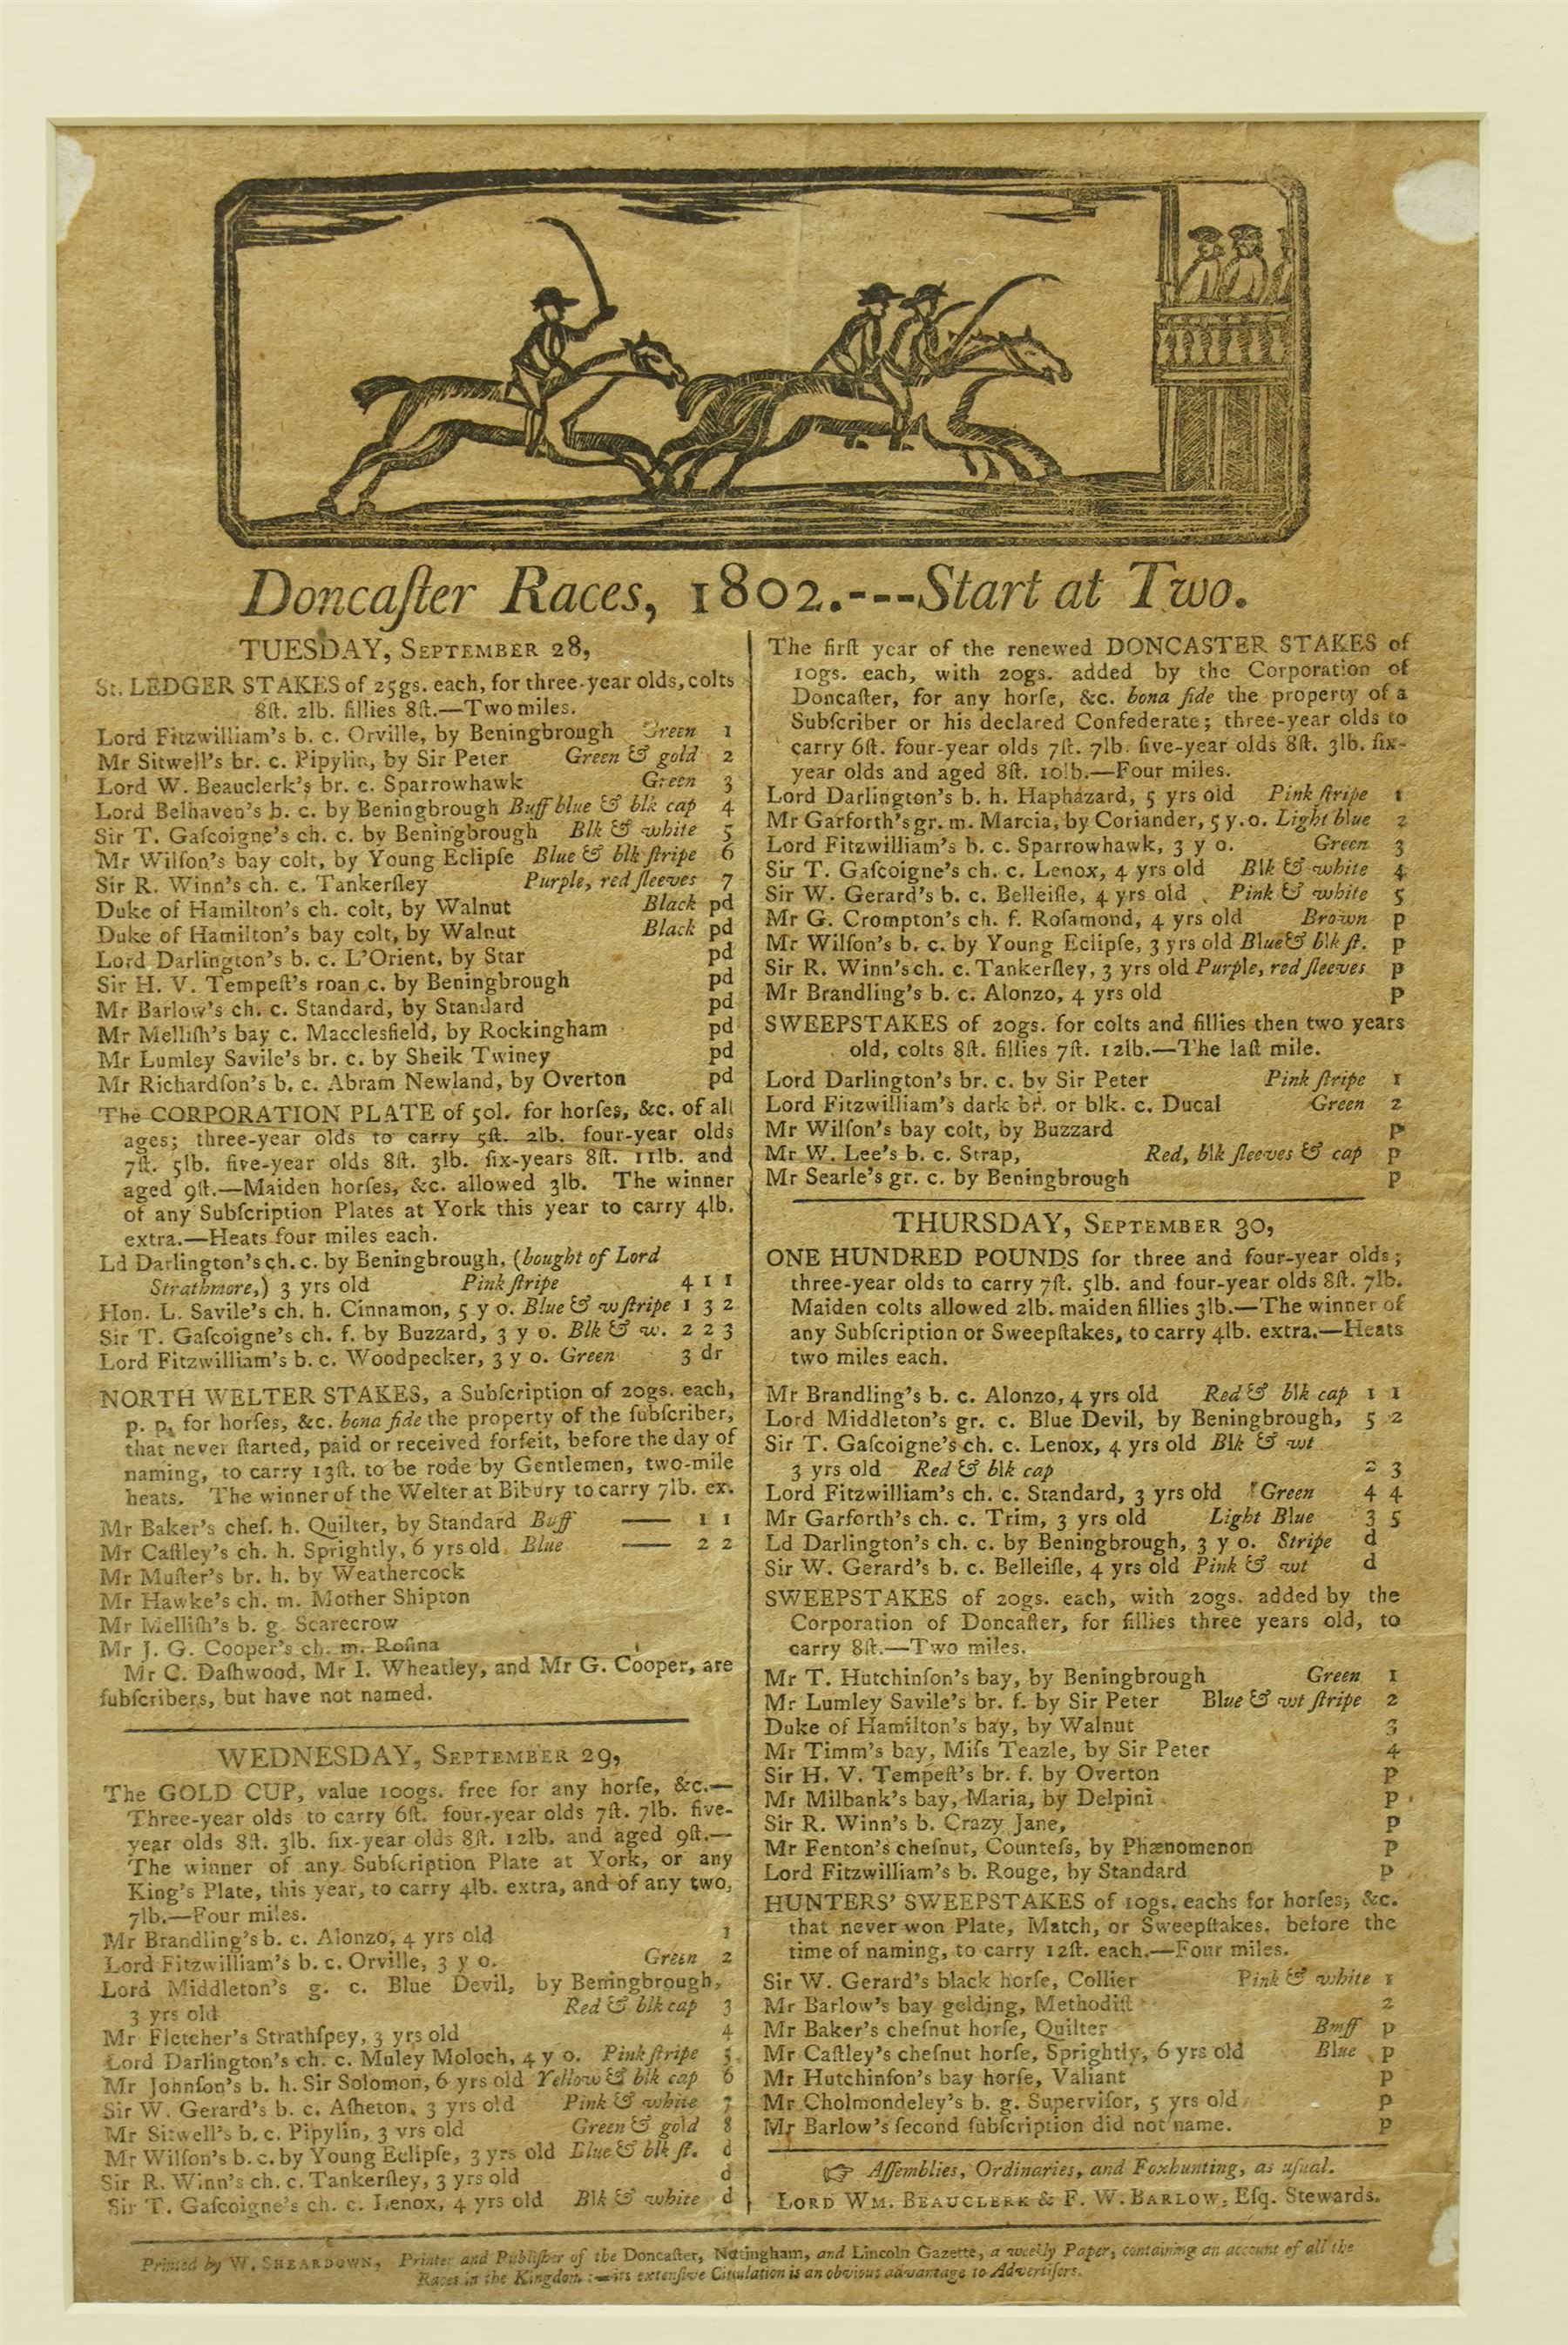 Doncaſter Races, 1802.---Start at Two.
TUESDAY, SEPTEMBER 28,
St. LEDGER STAKES of 25gs. each, for three-year olds, colts
8ſt. 2lb. fillies 8ſt.—Two miles.
Lord Fitzwilliam's b. c. Orville, by Beningbrough Green 1
Mr Sitwell's br. c. Pipylin, by Sir Peter Green & gold 2
Lord W. Beauclerk's br. c. Sparrowhawk Green 3
Lord Belhaven's b. c. by Beningbrough Buff blue & blk cap 4
Sir T. Gaſcoigne's ch. c. by Beningbrough Blk & white 5
Mr Wilſon's bay colt, by Young Eclipſe Blue & blk ſtripe 6
Sir R. Winn's ch. c. Tankerſley Purple, red ſleeves 7
Duke of Hamilton's ch. colt, by Walnut Black pd
Duke of Hamilton's bay colt, by Walnut Black pd
Lord Darlington's b. c. L'Orient, by Star pd
Sir H. V. Tempeſt's roan c. by Beningbrough pd
Mr Barlow's ch. c. Standard, by Standard pd
Mr Melliſh's bay c. Macclesfield, by Rockingham pd
Mr Lumley Savile's br. c. by Sheik Twiney pd
Mr Richardſon's b. c. Abram Newland, by Overton pd
The CORPORATION PLATE of 50l. for horſes, &c. of all
ages; three-year olds to carry 5ſt. 2lb. four-year olds
7ſt. 5lb. five-year olds 8ſt. 3lb. ſix-years 8ſt. 11lb. and
aged 9ſt.—Maiden horſes, &c. allowed 3lb. The winner
of any Subſcription Plates at York this year to carry 4lb.
extra.—Heats four miles each.
Ld Darlington's ch. c. by Beningbrough, (bought of Lord
Strathmore,) 3 yrs old Pink ſtripe 4 1 1
Hon. L. Savile's ch. h. Cinnamon, 5 y o. Blue & w ſtripe 1 3 2
Sir T. Gaſcoigne's ch. f. by Buzzard, 3 y o. Blk & w. 2 2 3
Lord Fitzwilliam's b. c. Woodpecker, 3 y o. Green 3 dr
NORTH WELTER STAKES, a Subſcription of 20gs. each,
p. p. for horſes, &c. bona fide the property of the ſubſcriber,
that never ſtarted, paid or received forfeit, before the day of
naming, to carry 13ſt. to be rode by Gentlemen, two-mile
heats. The winner of the Welter at Bibury to carry 7lb. ex.
Mr Baker's cheſ. h. Quilter, by Standard Buff — 1 1
Mr Caſtley's ch. h. Sprightly, 6 yrs old Blue — 2 2
Mr Muſter's br. h. by Weathercock
Mr Hawke's ch. m. Mother Shipton
Mr Melliſh's b. g. Scarecrow
Mr J. G. Cooper's ch. m. Roſina
Mr C. Daſhwood, Mr I. Wheatley, and Mr G. Cooper, are
ſubſcribers, but have not named.
WEDNESDAY, SEPTEMBER 29,
The GOLD CUP, value 100gs. free for any horſe, &c.—
Three-year olds to carry 6ſt. four-year olds 7ſt. 7lb. five-
year olds 8ſt. 3lb. ſix-year olds 8ſt. 12lb. and aged 9ſt.—
The winner of any Subſcription Plate at York, or any
King's Plate, this year, to carry 4lb. extra, and of any two,
7lb.—Four miles.
Mr Brandling's b. c. Alonzo, 4 yrs old 1
Lord Fitzwilliam's b. c. Orville, 3 y o. Green 2
Lord Middleton's g. c. Blue Devil, by Beningbrough,
3 yrs old Red & blk cap 3
Mr Fletcher's Strathſpey, 3 yrs old 4
Lord Darlington's ch. c. Muley Moloch, 4 y o. Pink ſtripe 5
Mr Johnſon's b. h. Sir Solomon, 6 yrs old Yellow & blk cap 6
Sir W. Gerard's b. c. Aſheton, 3 yrs old Pink & white 7
Mr Sitwell's b. c. Pipylin, 3 yrs old Green & gold 8
Mr Wilſon's b. c. by Young Eclipſe, 3 yrs old Blue & blk ſt. d
Sir R. Winn's ch. c. Tankerſley, 3 yrs old d
Sir T. Gaſcoigne's ch. c. Lenox, 4 yrs old Blk & white d
The firſt year of the renewed DONCASTER STAKES of
10gs. each, with 20gs. added by the Corporation of
Doncaſter, for any horſe, &c. bona fide the property of a
Subſcriber or his declared Confederate; three-year olds to
carry 6ſt. four-year olds 7ſt. 7lb. five-year olds 8ſt. 3lb. ſix-
year olds and aged 8ſt. 10lb.—Four miles.
Lord Darlington's b. h. Haphazard, 5 yrs old Pink ſtripe 1
Mr Garforth's gr. m. Marcia, by Coriander, 5 y.o. Light blue 2
Lord Fitzwilliam's b. c. Sparrowhawk, 3 y o. Green 3
Sir T. Gaſcoigne's ch. c. Lenox, 4 yrs old Blk & white 4
Sir W. Gerard's b. c. Belleiſle, 4 yrs old Pink & white 5
Mr G. Crompton's ch. f. Roſamond, 4 yrs old Brown p
Mr Wilſon's b. c. by Young Eclipſe, 3 yrs old Blue & blk ſt. p
Sir R. Winn's ch. c. Tankerſley, 3 yrs old Purple, red ſleeves p
Mr Brandling's b. c. Alonzo, 4 yrs old p
SWEEPSTAKES of 20gs. for colts and fillies then two years
old, colts 8ſt. fillies 7ſt. 12lb.—The laſt mile.
Lord Darlington's br. c. by Sir Peter Pink ſtripe 1
Lord Fitzwilliam's dark br. or blk. c. Ducal Green 2
Mr Wilſon's bay colt, by Buzzard p
Mr W. Lee's b. c. Strap, Red, blk ſleeves & cap p
Mr Searle's gr. c. by Beningbrough p
THURSDAY, SEPTEMBER 30,
ONE HUNDRED POUNDS for three and four-year olds;
three-year olds to carry 7ſt. 5lb. and four-year olds 8ſt. 7lb.
Maiden colts allowed 2lb. maiden fillies 3lb.—The winner of
any Subſcription or Sweepſtakes, to carry 4lb. extra.—Heats
two miles each.
Mr Brandling's b. c. Alonzo, 4 yrs old Red & blk cap 1 1
Lord Middleton's gr. c. Blue Devil, by Beningbrough, 5 2
Sir T. Gaſcoigne's ch. c. Lenox, 4 yrs old Blk & wt
3 yrs old Red & blk cap 2 3
Lord Fitzwilliam's ch. c. Standard, 3 yrs old Green 4 4
Mr Garforth's ch. c. Trim, 3 yrs old Light Blue 3 5
Ld Darlington's ch. c. by Beningbrough, 3 y o. Stripe d
Sir W. Gerard's b. c. Belleiſle, 4 yrs old Pink & wt d
SWEEPSTAKES of 20gs. each, with 20gs. added by the
Corporation of Doncaſter, for fillies three years old, to
carry 8ſt.—Two miles.
Mr T. Hutchinſon's bay, by Beningbrough Green 1
Mr Lumley Savile's br. f. by Sir Peter Blue & wt ſtripe 2
Duke of Hamilton's bay, by Walnut 3
Mr Timm's bay, Miſs Teazle, by Sir Peter 4
Sir H. V. Tempeſt's br. f. by Overton p
Mr Milbank's bay, Maria, by Delpini p
Sir R. Winn's b. Crazy Jane, p
Mr Fenton's cheſnut, Counteſs, by Phænomenon p
Lord Fitzwilliam's b. Rouge, by Standard p
HUNTERS' SWEEPSTAKES of 10gs. eachs for horſes, &c.
that never won Plate, Match, or Sweepſtakes, before the
time of naming, to carry 12ſt. each.—Four miles.
Sir W. Gerard's black horſe, Collier Pink & white 1
Mr Barlow's bay gelding, Methodiſt 2
Mr Baker's cheſnut horſe, Quilter Bmff p
Mr Caſtley's cheſnut horſe, Sprightly, 6 yrs old Blue p
Mr Hutchinſon's bay horſe, Valiant p
Mr Cholmondeley's b. g. Superviſor, 5 yrs old p
Mr Barlow's ſecond ſubſcription did not name. p
☞ Aſſemblies, Ordinaries, and Foxhunting, as uſual.
LORD WM. BEAUCLERK & F. W. BARLOW, Eſq. Stewards.
Printed by W. SHEARDOWN, Printer and Publiſher of the Doncaſter, Nottingham, and Lincoln Gazette, a weekly Paper, containing an account of all the
Races in the Kingdom:—its extenſive Circulation is an obvious advantage to Advertiſers.